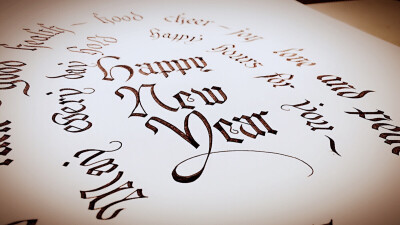 Happy
New
Year
May every day hold happy hours for you ~
good health ~ good cheer ~ joy love and peace